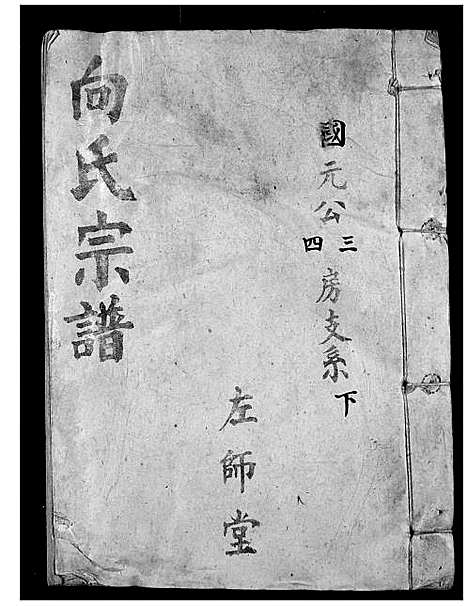 國元公三四房支系下
左師堂
向氏宗譜